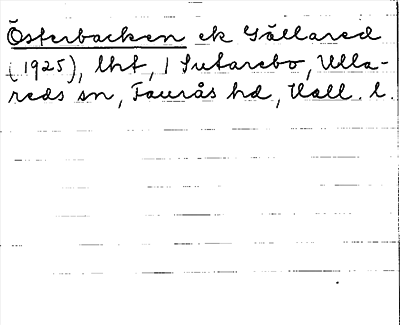 Österbacken ek Gällared
(1925), lht, 1 Sutarebo, Ulla-
reds sn, Faurås hd, Hall. l.